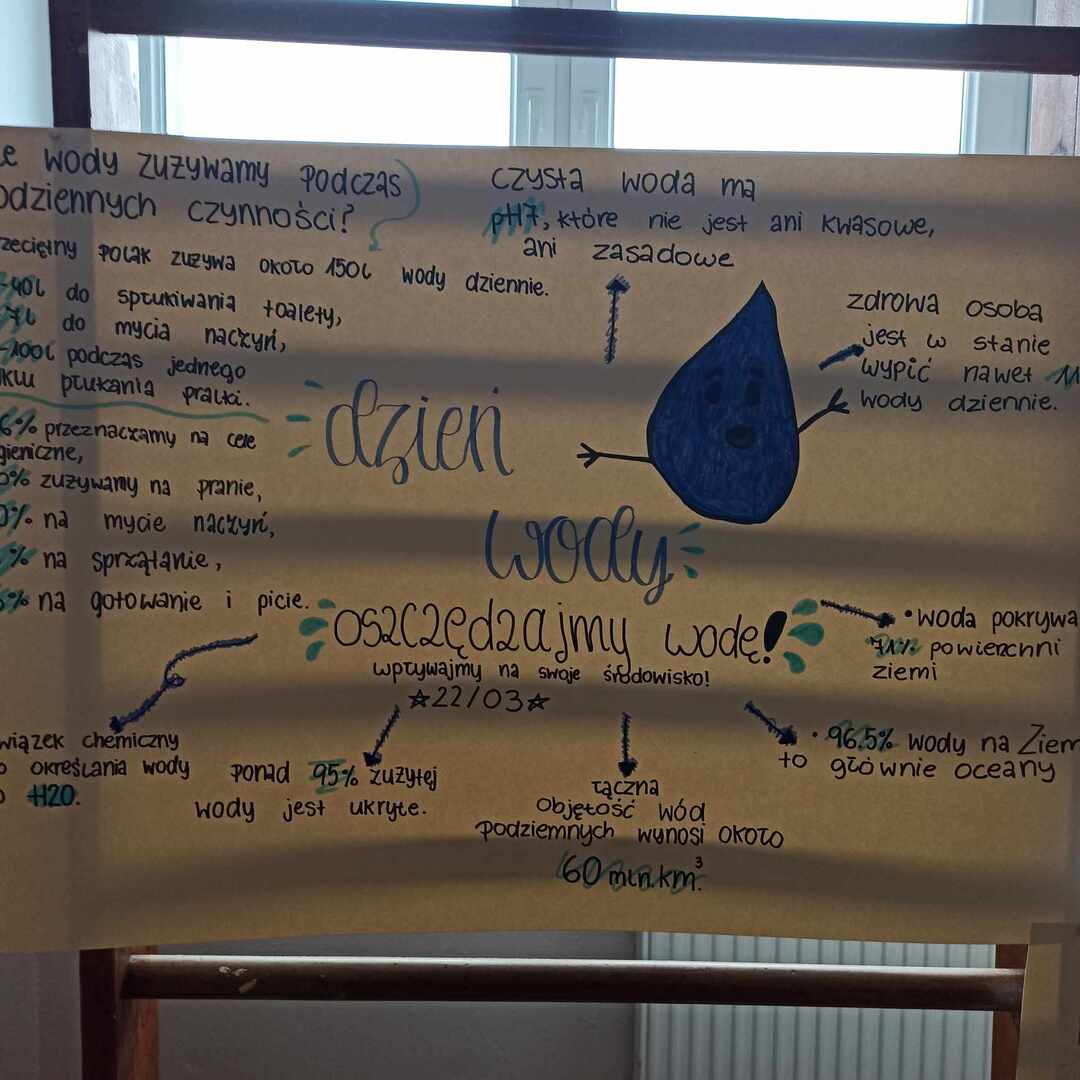 wody zużywamy podczas
czynności?
polak zużywa około 150l wody dziennie.
do spłukiwania toalety,
do mycia naczyń,
podczas jednego
płukania pralki.
przeznaczamy na cele
zużywamy na pranie,
na mycie naczyń,
na sprzątanie,
na gotowanie i picie.
czysta woda ma
pH7, które nie jest ani kwasowe,
ani zasadowe
zdrowa osoba
jest w stanie
wypić nawet
wody dziennie.
dzień
wody
oszczędzajmy wodę!
wpływajmy na swoje środowisko!
☆22/03☆
• woda pokrywa
71% powierzchni
ziemi
• 96.5% wody na
to głównie oceany
chemiczny
określania wody
H2O.
ponad 95% zużytej
wody jest ukryte.
łączna
objętość wód
podziemnych wynosi około
60 mln.km³.